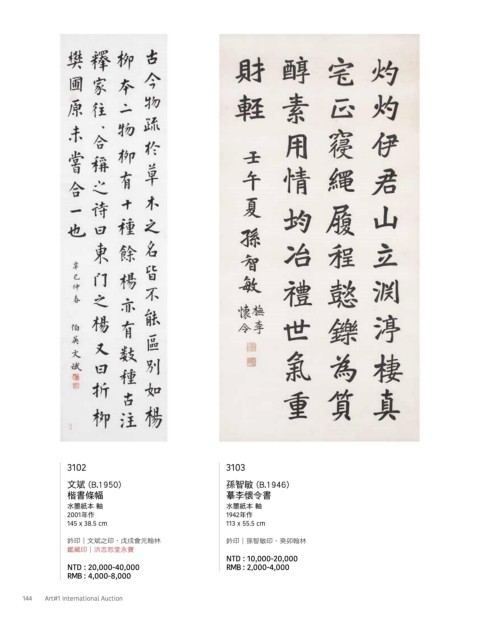 古今物疏於草木之名皆不能區別如楊
柳本二物柳有十種餘楊亦有数種古注
釋家往、合稱之诗曰東门之楊又曰折柳
樊圃原未嘗合一也
辛巳仲春
伯英文斌
灼灼伊君山立渊渟棲真
宅正寝繩履程懿鑠為質
醇素用情均冶禮世氣重
財輕
壬午夏孫智敏
橅李
懷令
3102
文斌 (B.1950)
楷書條幅
水墨紙本 軸
2001年作
145 x 38.5 cm
鈐印｜文斌之印、戊戌會元翰林
鑑藏印｜洪恕恕堂永寶
NTD : 20,000-40,000
RMB : 4,000-8,000
3103
孫智敏 (B.1946)
摹李懷令書
水墨紙本 軸
1942年作
113 x 55.5 cm
鈐印｜孫智敏印、癸卯翰林
NTD : 10,000-20,000
RMB : 2,000-4,000
144 Art#1 International Auction